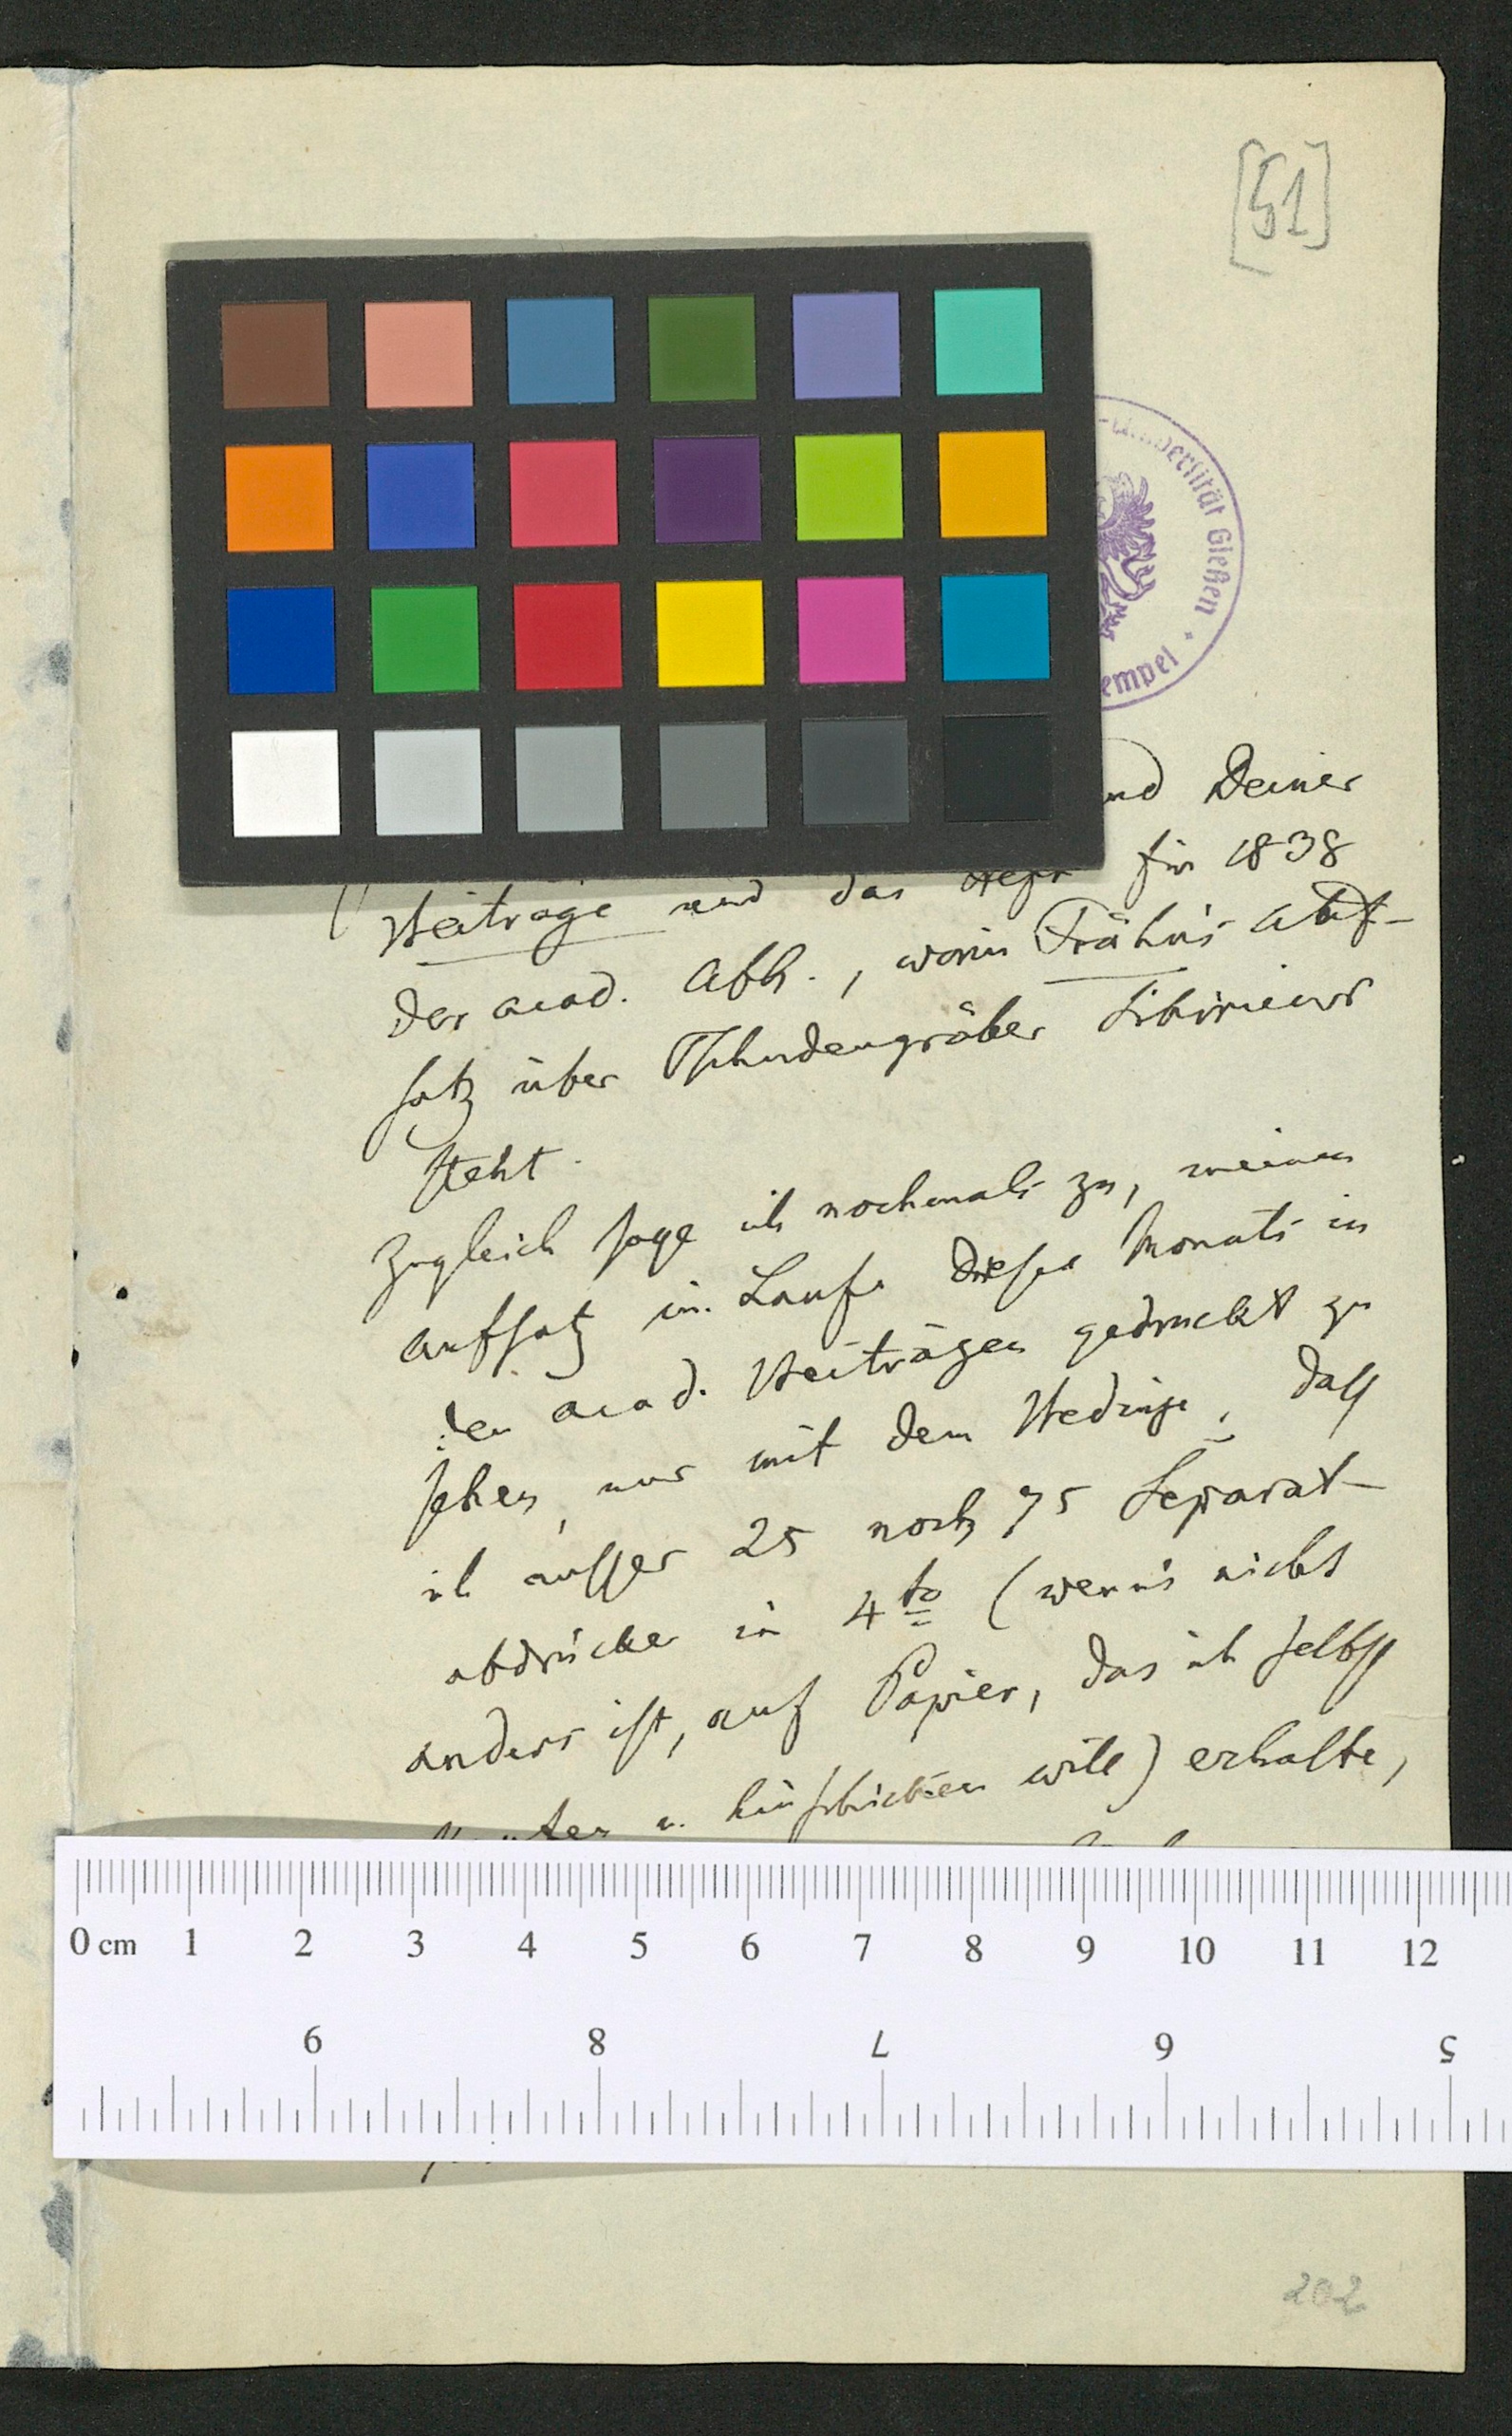 [51]
Universität Gießen
empel
und Deiner
Beiträge und das Heft für 1838
der acad. Abh., worin Frähn's Auf-
satz über Tschudengräber Sibiriens
steht.
Zugleich sage ich nochmals zu, meinen
Aufsatz im Laufe dieses Monats in
den acad. Beiträgen gedruckt zu
sehen, nur mit dem Beding, daß
ich ausser 25 noch 75 Separat-
abdrücke in 4to (wenn's nicht
anders ist, auf Papier, das ich selbst
u. hinschicken will) erhalte,
0 cm 1 2 3 4 5 6 7 8 9 10 11 12
9 8 7 6 5
202